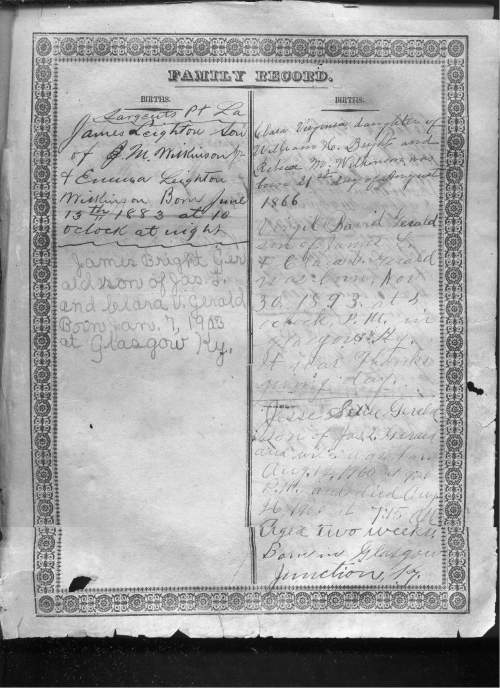 FAMILY RECORD.
BIRTHS.
Sargents Pt La
James Leighton Son
of J. M. Wilkinson Jr
& Emma Leighton
Wilkinson Born June
15th 1883 at 10
oclock at night
James Bright Ger
ald son of Jas. L.
and Clara V. Gerald
Born Jan. 7, 1903
at Glasgow Ky.
BIRTHS.
Clara Virginia daughter of
William H. Bright and
M. Wilkinson was
born 21st day of August
1866
Virgil David Gerald
son of James L.
& Clara V. Gerald
was born, Nov
30, 1893, at 8
oclock, P.M., in
Glasgow Ky.
It was Thanks
giving day.
Jesse Gerald
son of Jas L Gerald
and born
Aug. 14, at
P.M. and died Aug
at 7:15 AM
Aged two weeks
Born in Glasgow
Junction Ky.